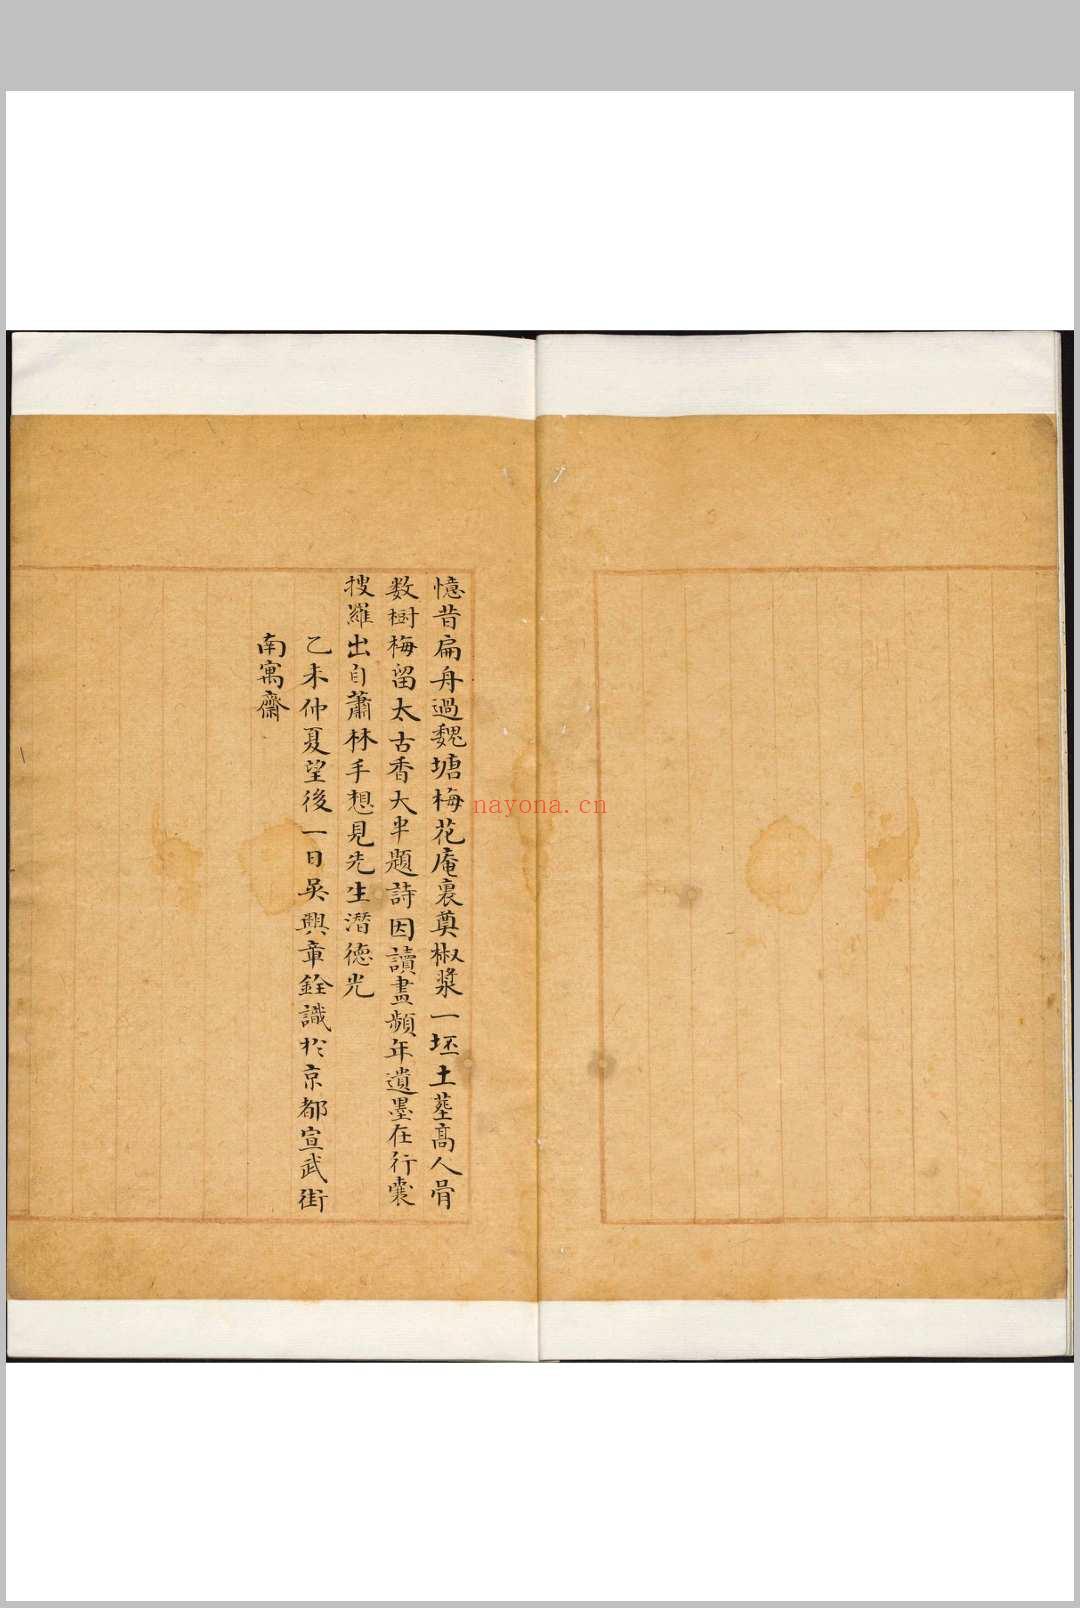 憶昔扁舟過魏塘梅花庵裏奠椒漿一坯土墓高人骨
数树梅留太古香大半題詩因讀畫頻年遺墨在行囊
搜羅出自蕭林手想見先生潛德光
乙未仲夏望後一日吳興章銓識於京都宣武街
南寓齋
nayona.cn